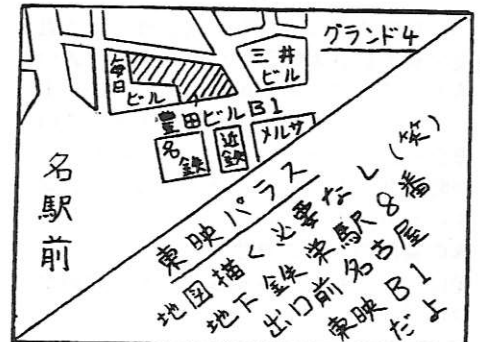 グランド4
三井
ビル
毎日
ビル
豊田ビルB1
名鉄
近鉄
メルサ
名駅前
東映パラス
地図描く必要なし(笑)
地下鉄栄駅8番
出口前名古屋
東映B1
だよ